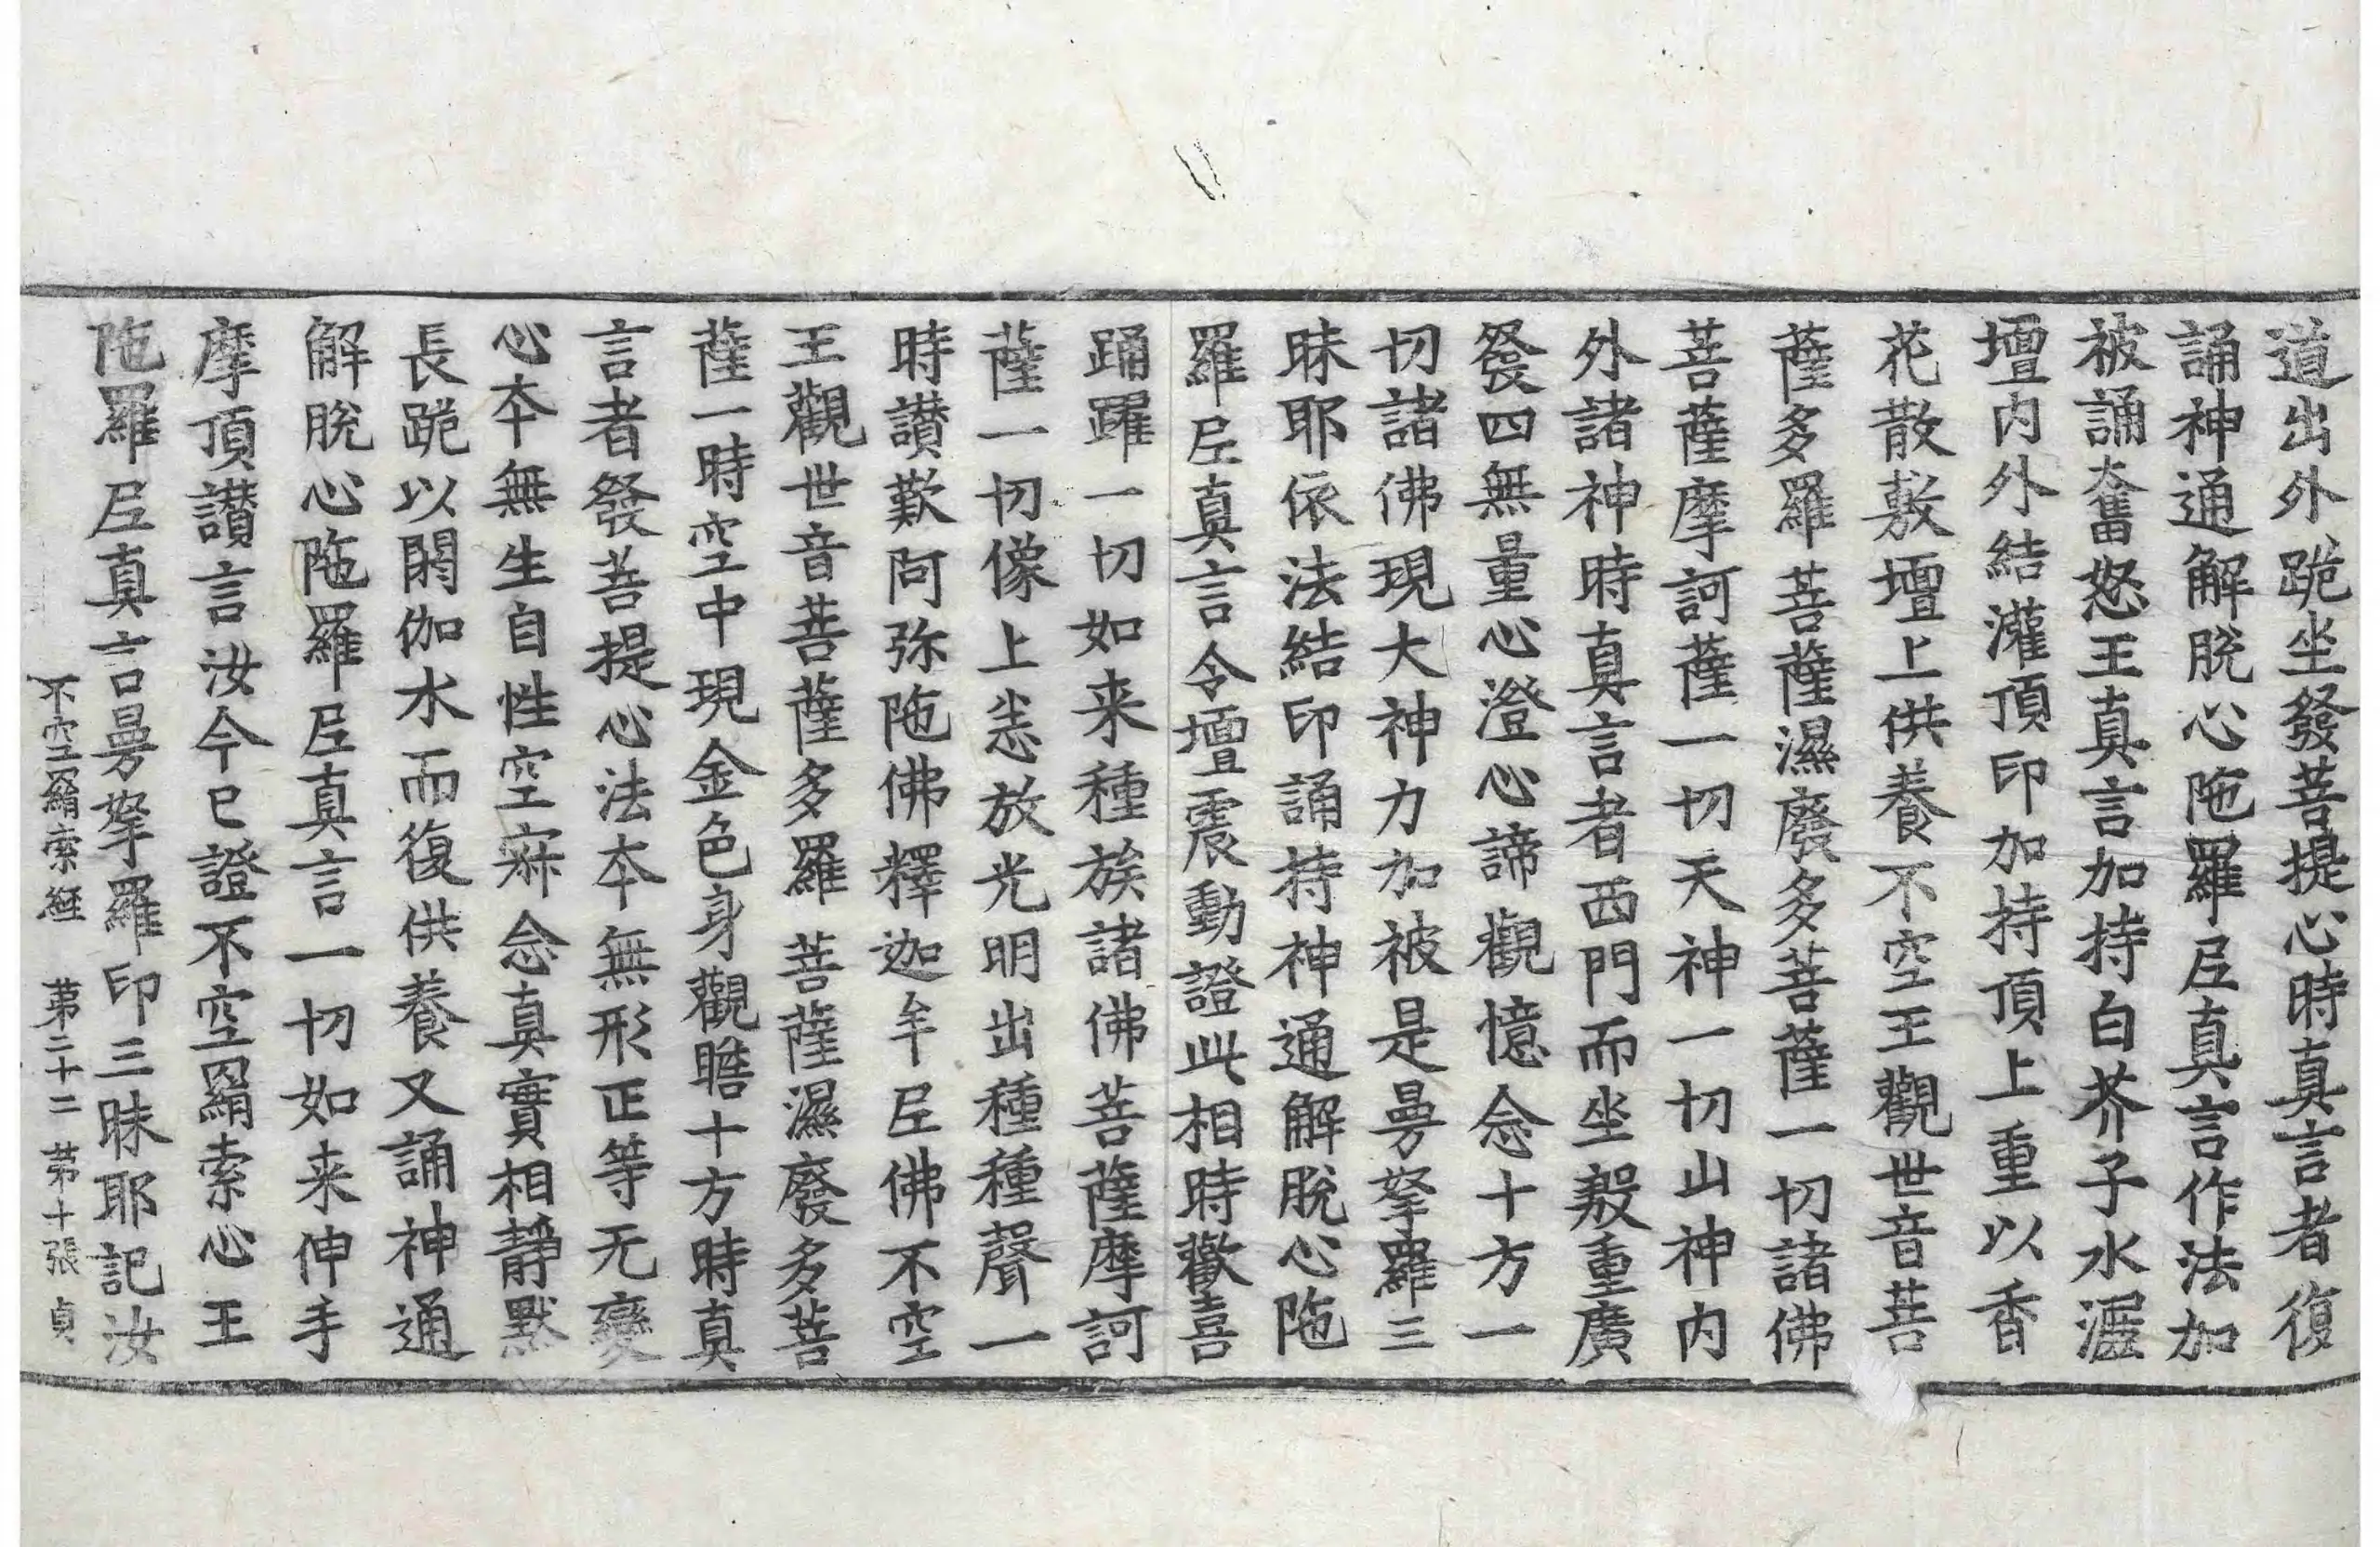 道出外跪坐發菩提心時真言者復
誦神通解脫心陁羅𡰱真言作法加
被誦奮怒王真言加持白芥子水灑
壇內外結灌頂印加持頂上重以香
花散敷壇上供養不空王觀世音菩
薩多羅菩薩濕廢多菩薩一切諸佛
菩薩摩訶薩一切天神一切山神內
外諸神時真言者西門而坐㲉重廣
發四無量心澄心諦觀憶念十方一
切諸佛現大神力加被是曼拏羅三
昧耶依法結印誦持神通解脫心陁
羅𡰱真言令壇震動證此相時歡喜
踊躍一切如来種族諸佛菩薩摩訶
薩一切像上恙放光明出種種聲一
時讃歎阿弥陁佛釋迦牟𡰱佛不空
王觀世音菩薩多羅菩薩濕廢多菩
薩一時空中現金色身觀瞻十方時真
言者發菩提心法夲無形正等无變
心夲無生自性空寂念真實相靜默
長跪以閼伽水而復供養又誦神通
解脫心陁羅𡰱真言一切如来伸手
摩頂讃言汝今已證不空羂索心王
陁羅𡰱真言曼拏羅印三昧耶記汝
不空羂索經 第二十二 第十張 貞